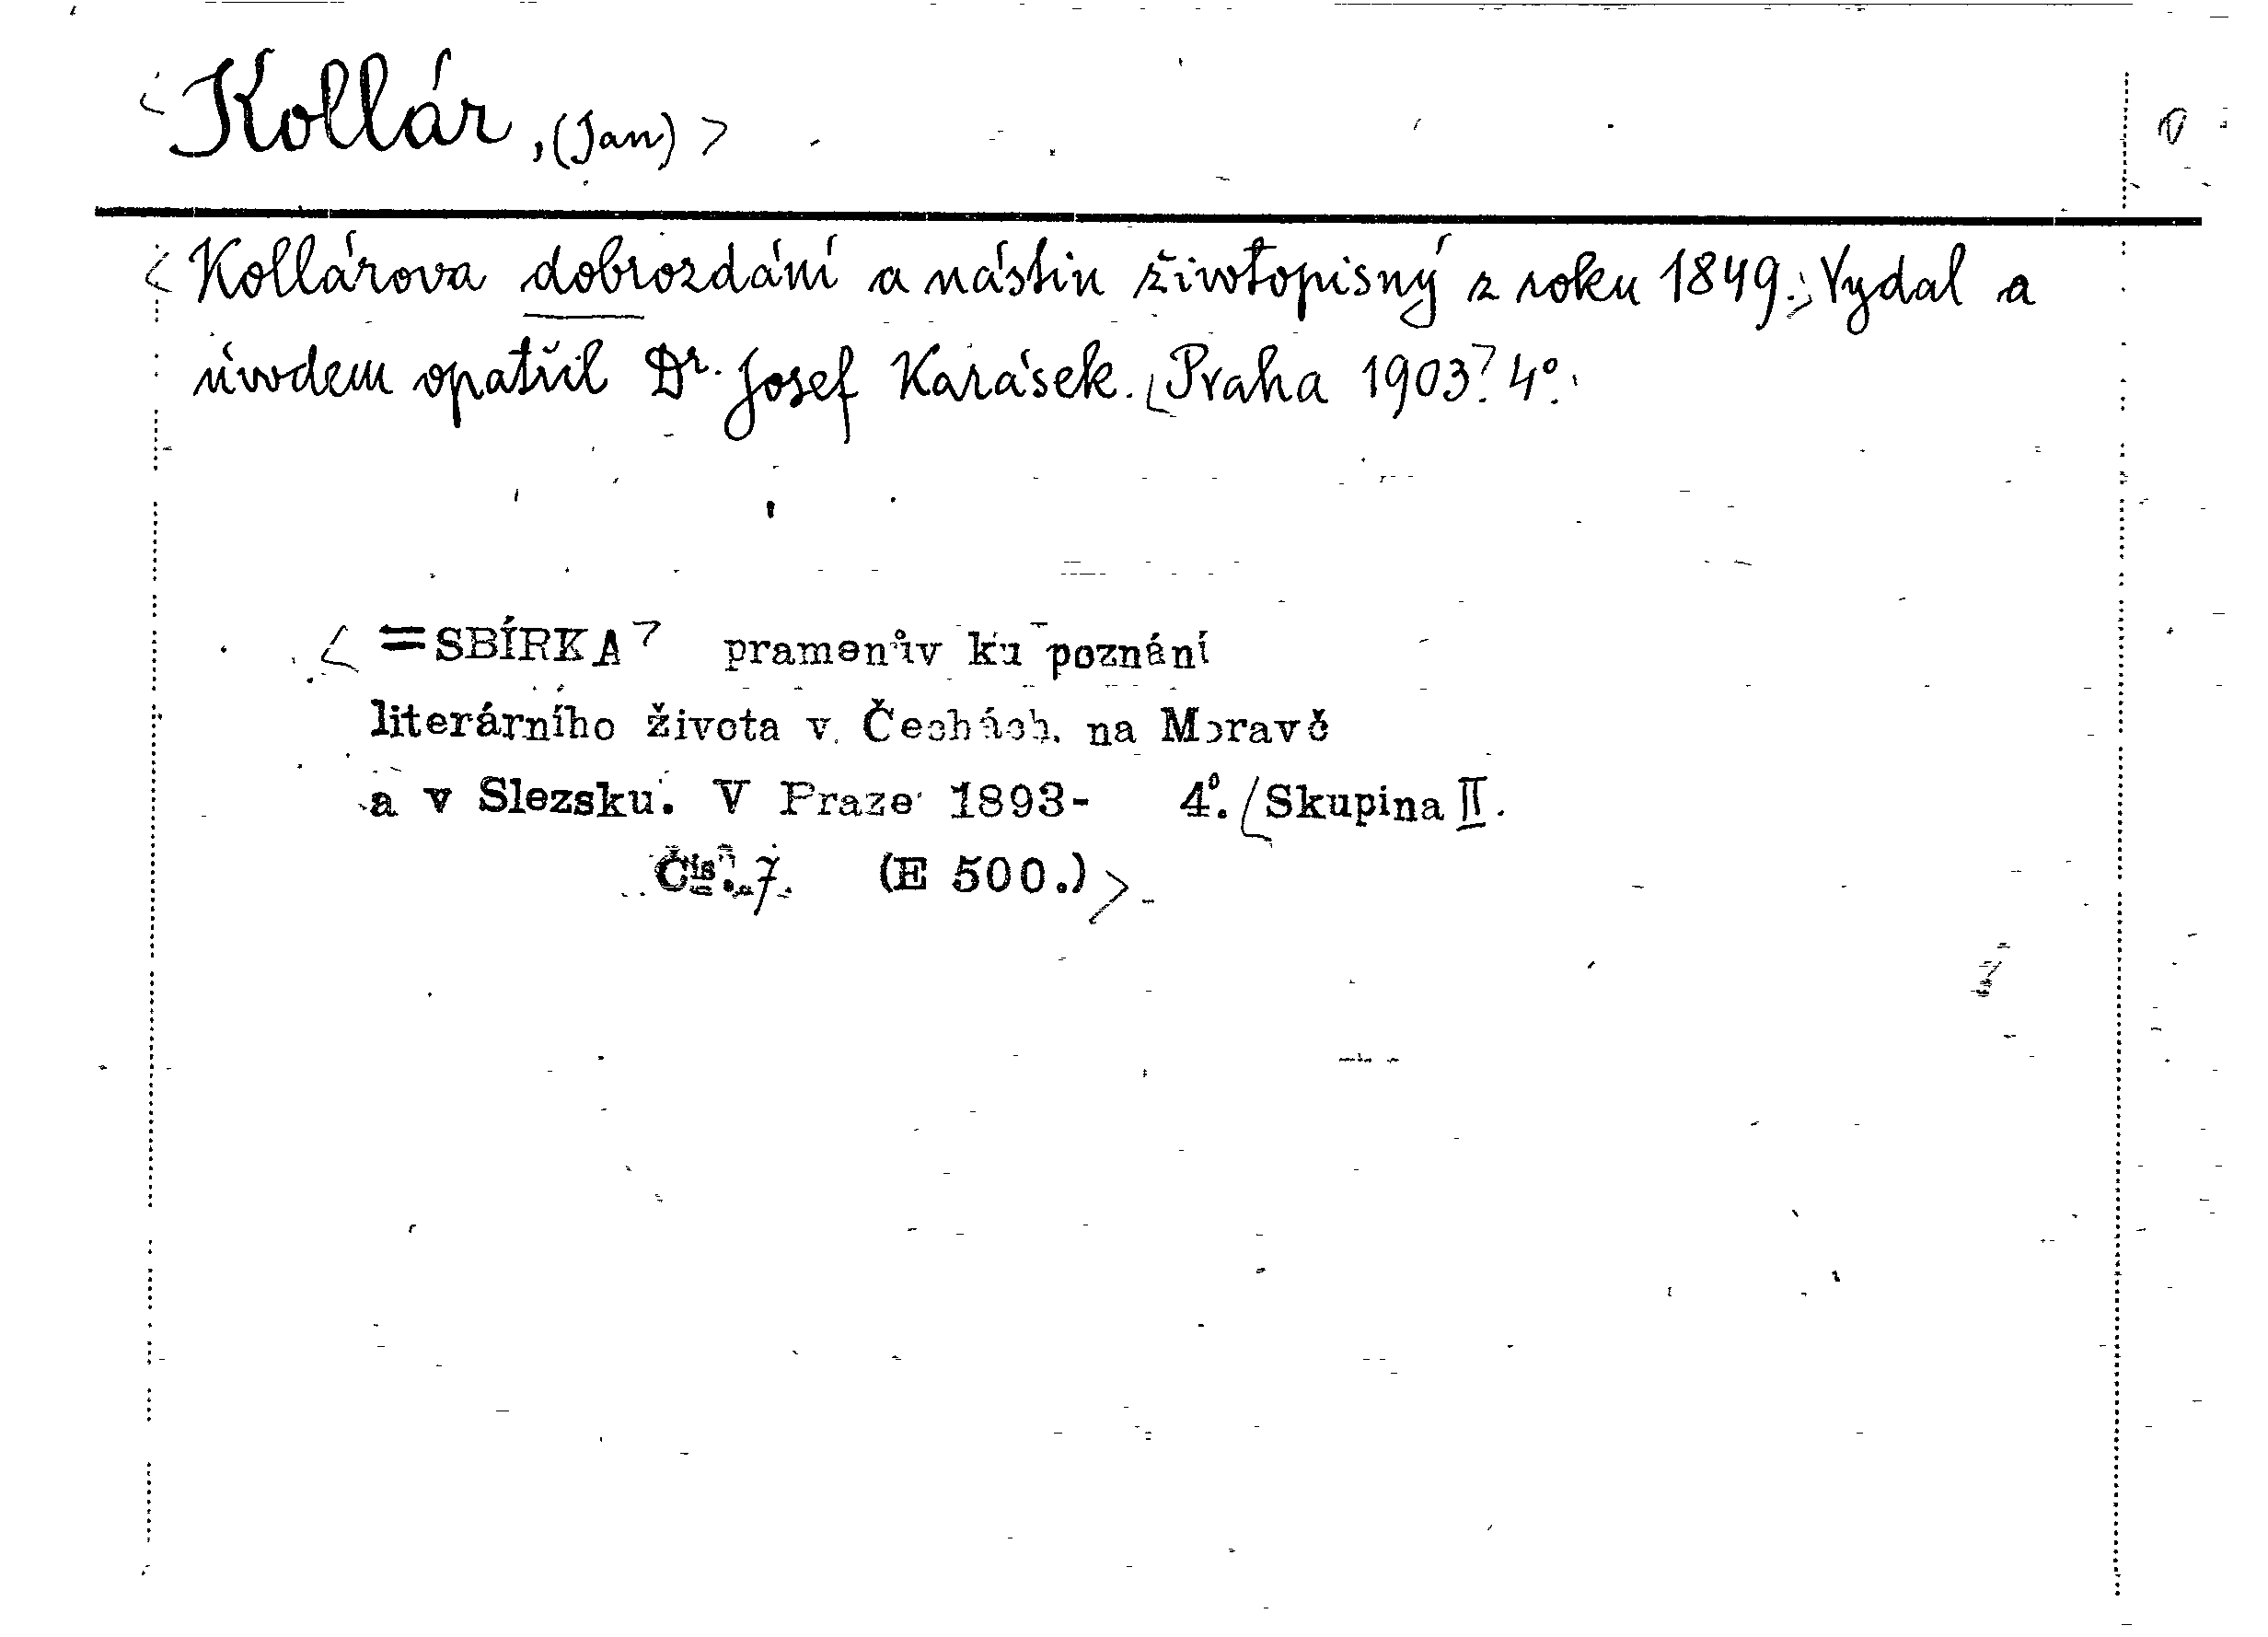 <Kollár, (Jan)>
<Kollárova dobrozdání a nástin životopisný z roku 1849.> Vydal a
úvodem opatřil Dr. Josef Karásek. [Praha 1903]. 4°.
<=SBÍRKA> pramenův ku poznání
literárního života v Čechách, na Moravě
a v Slezsku. V Praze 1893- 4°. <Skupina II.
Čís. 7. (E 500.)>